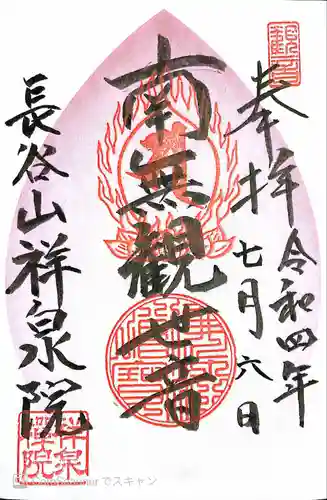 観音
奉拝
令和四年
七月六日
南無観世音
長谷山祥泉院
祥泉
禅院
でスキャン